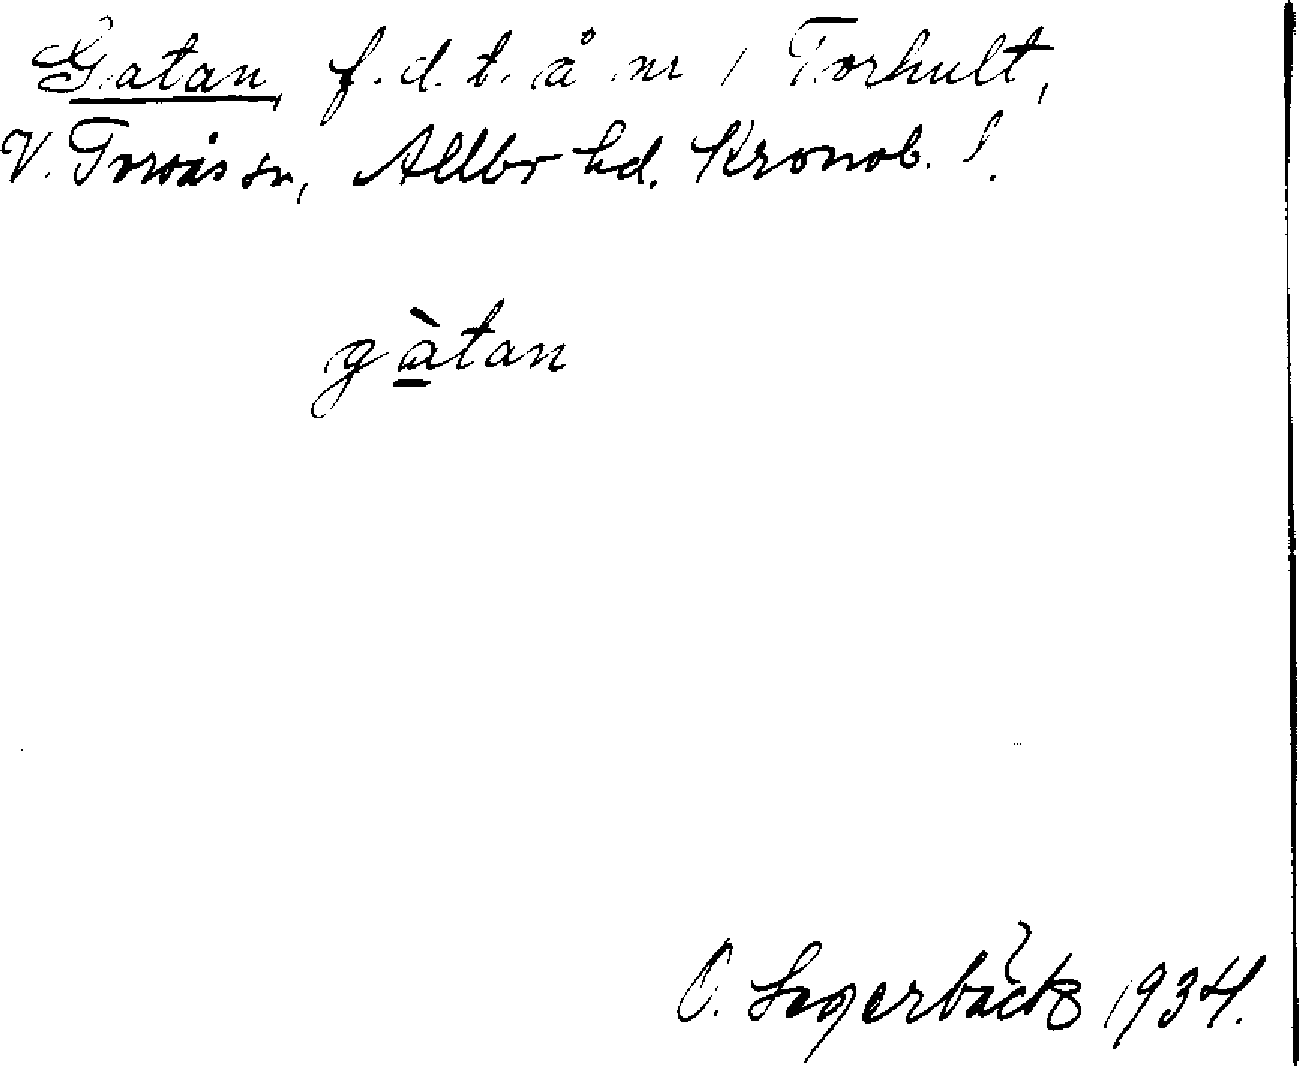 Gatan, f.d.t. å nr 1 Torhult,
V. Torsås sn, Allbo hd. Kronob. l.
gàtan
O. Lagerbäck 1934.